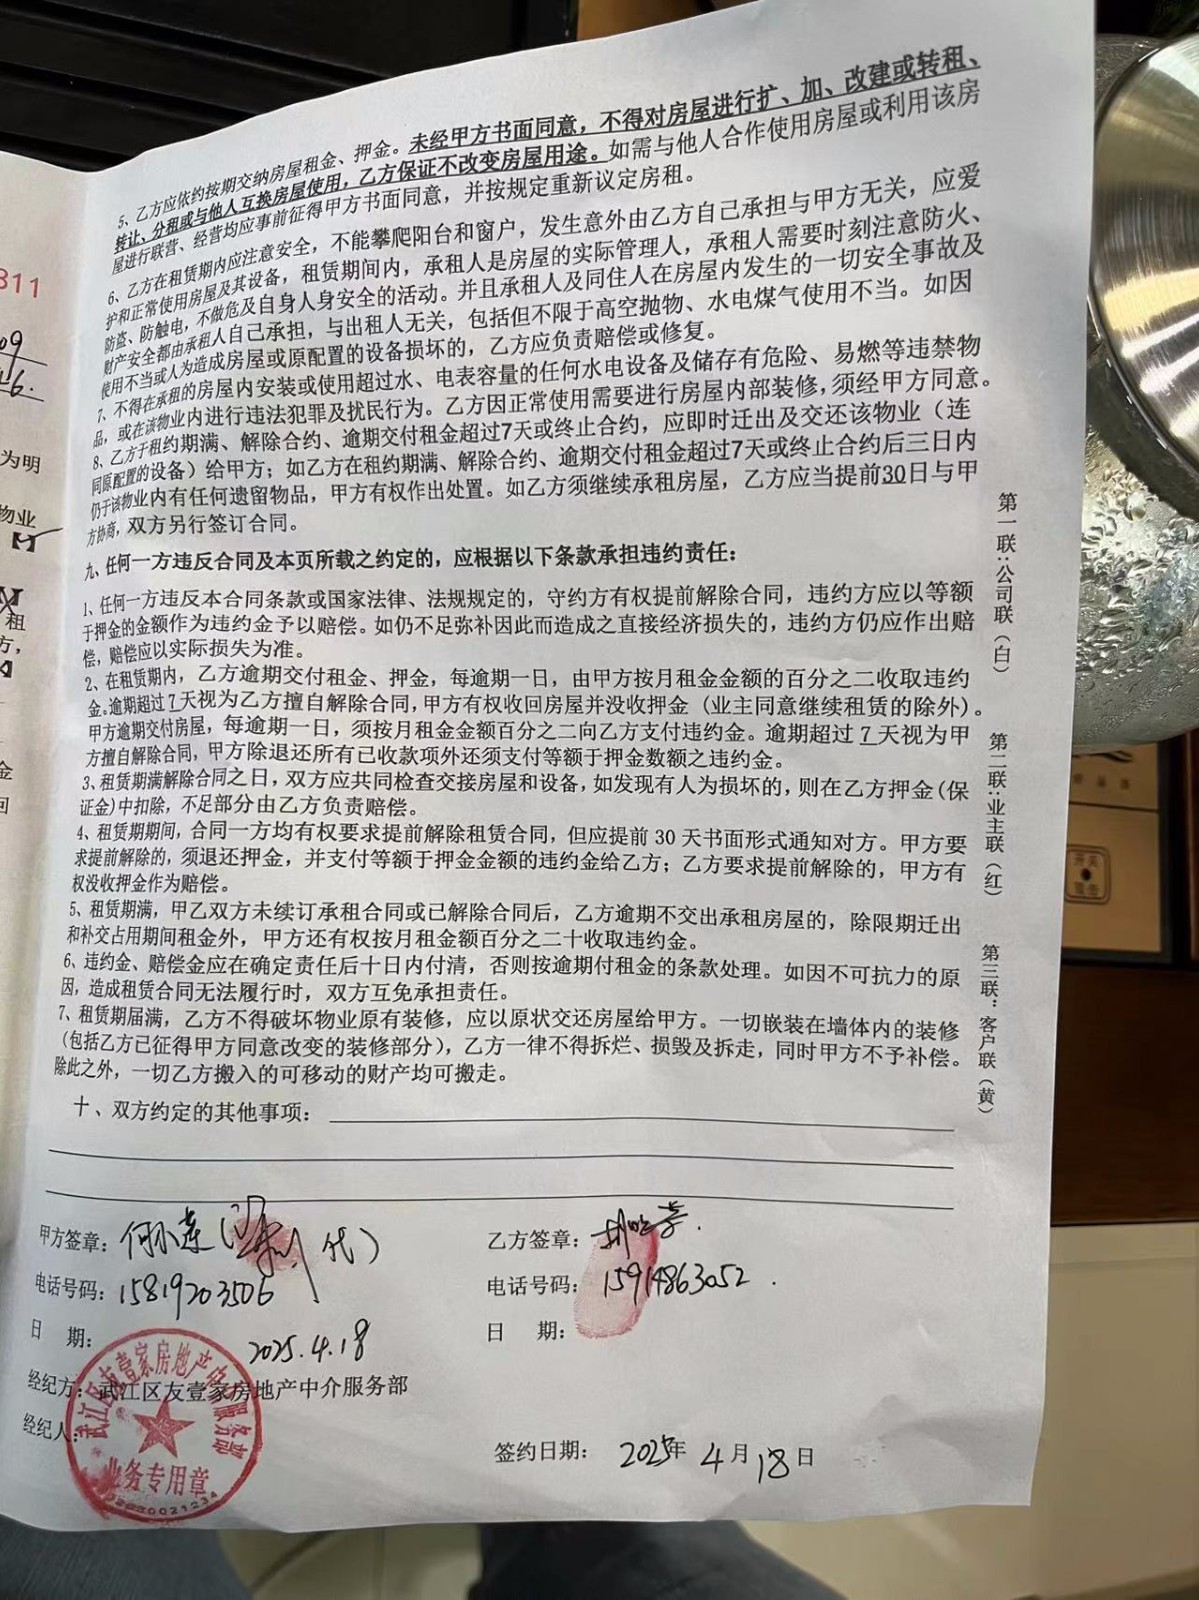 811
09
46.
为明
物业
【✓】
租
方，
金
回
5、乙方应依约按期交纳房屋租金、押金。未经甲方书面同意，不得对房屋进行扩、加、改建或转租、
转让、分租或与他人互换房屋使用，乙方保证不改变房屋用途。如需与他人合作使用房屋或利用该房
屋进行联营、经营均应事前征得甲方书面同意，并按规定重新议定房租。
6、乙方在租赁期内应注意安全，不能攀爬阳台和窗户，发生意外由乙方自己承担与甲方无关，应爱
护和正常使用房屋及其设备，租赁期间内，承租人是房屋的实际管理人，承租人需要时刻注意防火、
防盗、防触电，不做危及自身人身安全的活动。并且承租人及同住人在房屋内发生的一切安全事故及
财产安全都由承租人自己承担，与出租人无关，包括但不限于高空抛物、水电煤气使用不当。如因
使用不当或人为造成房屋或原配置的设备损坏的，乙方应负责赔偿或修复。
7、不得在承租的房屋内安装或使用超过水、电表容量的任何水电设备及储存有危险、易燃等违禁物
品，或在该物业内进行违法犯罪及扰民行为。乙方因正常使用需要进行房屋内部装修，须经甲方同意。
8、乙方于租约期满、解除合约、逾期交付租金超过7天或终止合约，应即时迁出及交还该物业（连
同原配置的设备）给甲方；如乙方在租约期满、解除合约、逾期交付租金超过7天或终止合约后三日内
仍于该物业内有任何遗留物品，甲方有权作出处置。如乙方须继续承租房屋，乙方应当提前30日与甲
方协商，双方另行签订合同。
九、任何一方违反合同及本页所载之约定的，应根据以下条款承担违约责任：
1、任何一方违反本合同条款或国家法律、法规规定的，守约方有权提前解除合同，违约方应以等额
于押金的金额作为违约金予以赔偿。如仍不足弥补因此而造成之直接经济损失的，违约方仍应作出赔
偿，赔偿应以实际损失为准。
2、在租赁期内，乙方逾期交付租金、押金，每逾期一日，由甲方按月租金金额的百分之二收取违约
金。逾期超过7天视为乙方擅自解除合同，甲方有权收回房屋并没收押金（业主同意继续租赁的除外）。
甲方逾期交付房屋，每逾期一日，须按月租金金额百分之二向乙方支付违约金。逾期超过7天视为甲
方擅自解除合同，甲方除退还所有已收款项外还须支付等额于押金数额之违约金。
3、租赁期满解除合同之日，双方应共同检查交接房屋和设备，如发现有人为损坏的，则在乙方押金（保
证金）中扣除，不足部分由乙方负责赔偿。
4、租赁期期间，合同一方均有权要求提前解除租赁合同，但应提前 30 天书面形式通知对方。甲方要
求提前解除的，须退还押金，并支付等额于押金金额的违约金给乙方；乙方要求提前解除的，甲方有
权没收押金作为赔偿。
5、租赁期满，甲乙双方未续订承租合同或已解除合同后，乙方逾期不交出承租房屋的，除限期迁出
和补交占用期间租金外，甲方还有权按月租金额百分之二十收取违约金。
6、违约金、赔偿金应在确定责任后十日内付清，否则按逾期付租金的条款处理。如因不可抗力的原
因，造成租赁合同无法履行时，双方互免承担责任。
7、租赁期届满，乙方不得破坏物业原有装修，应以原状交还房屋给甲方。一切嵌装在墙体内的装修
（包括乙方已征得甲方同意改变的装修部分），乙方一律不得拆烂、损毁及拆走，同时甲方不予补偿。
除此之外，一切乙方搬入的可移动的财产均可搬走。
十、双方约定的其他事项：
第一联：公司联（白）
第二联：业主联（红）
第三联：客户联（黄）
甲方签章：何小莲（代）
乙方签章：
电话号码：15819203506
电话号码：15914863052.
日 期：2025.4.18
日 期：
经纪方：武江区友壹家房地产中介服务部
经纪人：
签约日期：2025年4月18日
武江区友壹家房地产中介服务部
业务专用章